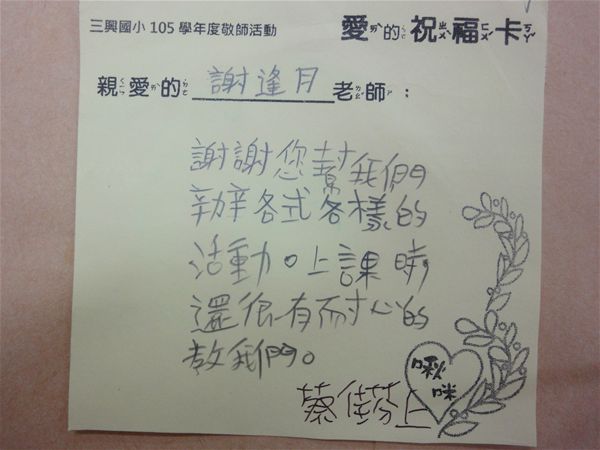 三興國小 105 學年度敬師活動
愛的祝福卡
親愛的謝逢月老師：
謝謝您幫我們
辦各式各樣的
活動。上課時
還很有耐心的
教我們。
啾咪
蔡佳芬上